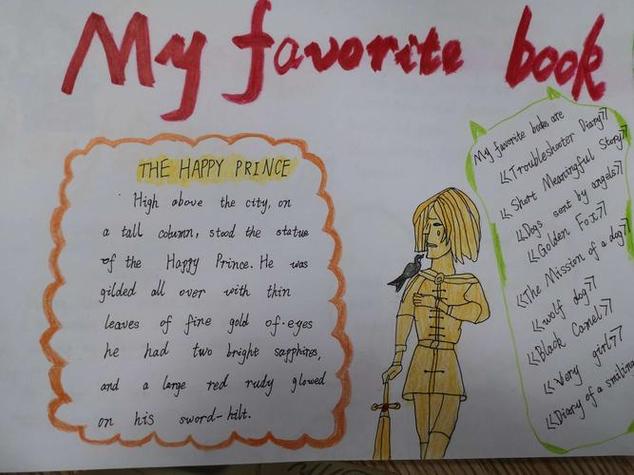 My favorite book
THE HAPPY PRINCE
High above the city, on
a tall column, stood the statue
of the Happy Prince. He was
gilded all over with thin
leaves of fine gold of·eyes
he had two bright sapphires,
and a large red rudy glowed
on his sword-hilt.
My favorite books are
《Troubleshooter Diary》
《Short Meaningful Story》
《Dogs sent by angels》
《Golden Fox》
《The Mission of a dog》
《wolf dog》
《Black Camel》
《Very girl》
《Diary of a smiling